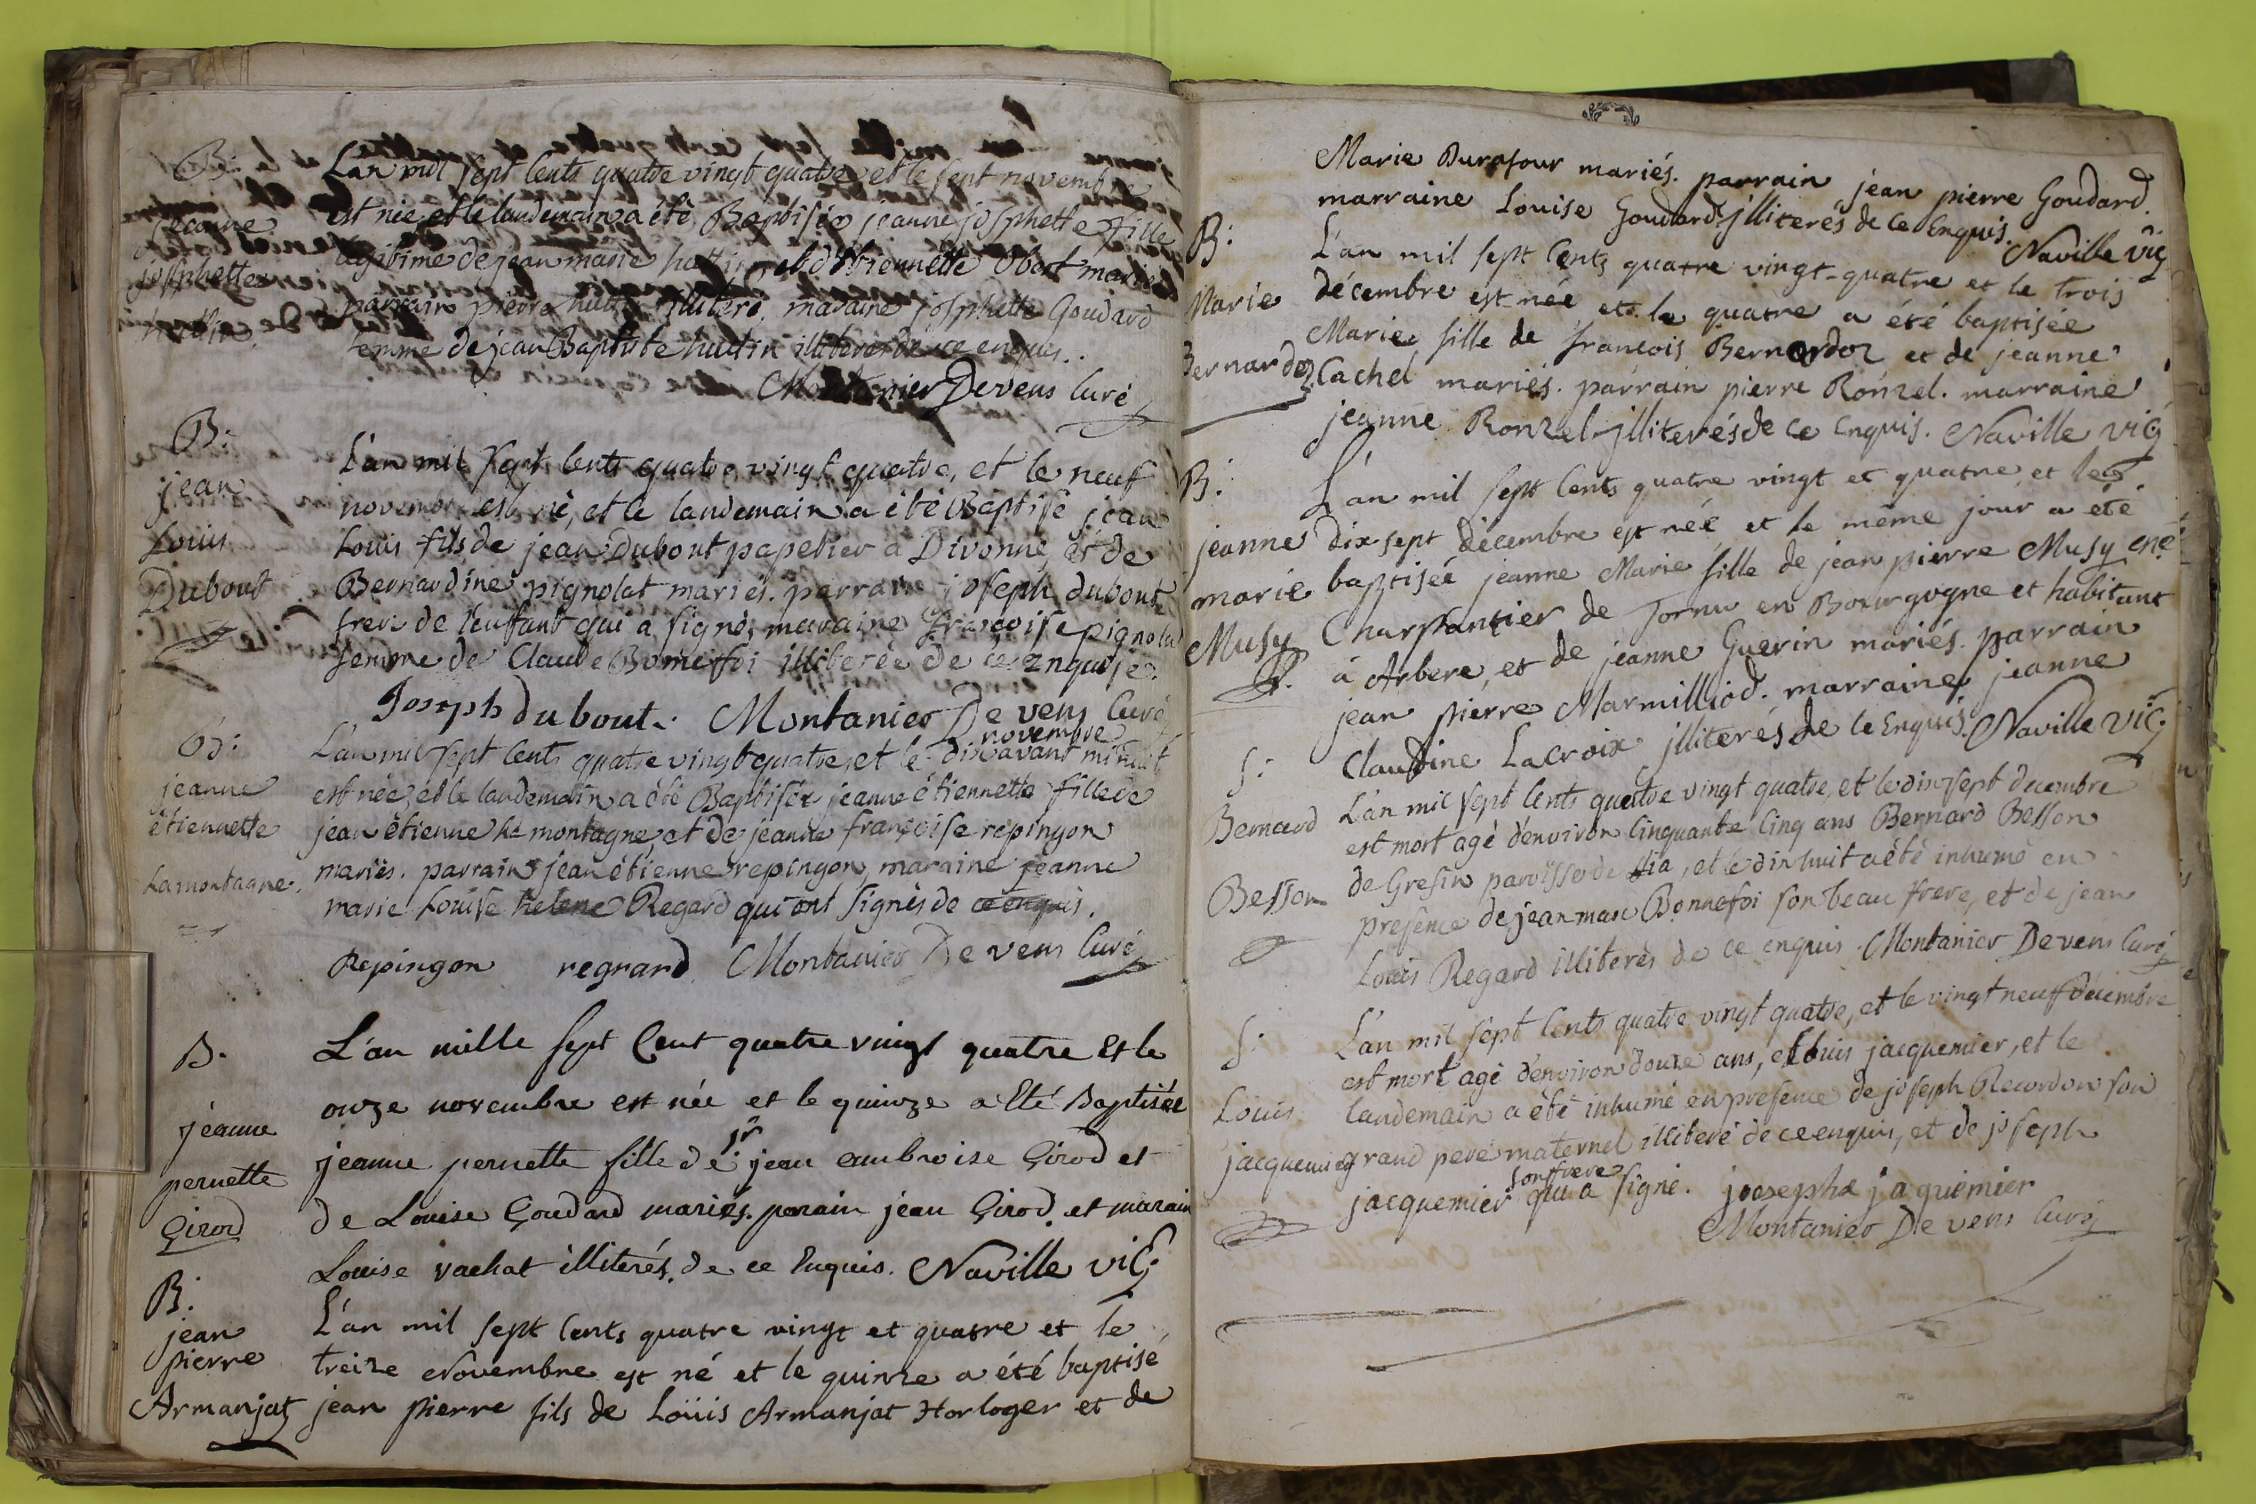 B:
jeanne
josphette
huttin.
L'an mil sept cents quatre vingt quatre et le sept novembre
est née, et le landemain a été Baptisée jeanne josphette fille
légitime de jean marie huttin et d'Etiennette Obert mariés
parrain pierre huttin illiteré, maraine josphette Goudard
femme de jean Baptiste huttin illiterés de ce enquis.
Montanier Devens Curé
B:
jean
Louis
Dubout
L'an mil sept cents quatre vingt quatre, et le neuf
novembre est né, et le landemain a été Baptisé jean
Louis fils de jean Dubout papetier a Divonne, et de
Bernardine pignolat mariés. parrain joseph dubout
frere de l'enffant qui a signé, maraine françoise pignolat
femme de Claude Bonneffoi illiterée de ce enquise.
Joseph dubout. Montanier De vens Curé
B:
jeanne
étiennette
Lamontagne.
novembre
L'an mil sept cents quatre vingt quatre, et le dix avant minuit
est née, et le landemain a été Baptisée jeanne étiennette fille de
jean étienne La montagne, et de jeanne françoise repingon
mariés. parrain jean étienne repingon, maraine jeanne
marie Louise helene Regard qui ont signés de ce enquis.
Repingon regrard Montanier De vens Curé
B.
jéanne
pernette
Girod
L'an mille sept Cent quatre vingt quatre et le
onze novembre est née et le quinze a Eté Baptisée
jeanne pernette fille de sr jean ambroise Girod et
de Louise Goudard mariés. parain jean Girod. et marain
Louise vachat illiterés. de ce Enquis. Naville viC:
B:
jean
pierre
Armanjat
L'an mil sept Cents quatre vingt et quatre et le
treize Novembre est né et le quinze a été baptisé
jean pierre fils de Loüis Armanjat Horloger et de
Marie Durafour mariés. parrain jean pierre Goudard.
marraine Louise Goudard jlliterés de ce Enquis.
Naville vic
B:
Marie
Bernardoz
L'an mil sept Cents quatre vingt-quatre et le trois
décembre est née et le quatre a été baptisée
Marie fille de françois Bernardoz et de jeanne
Cachel mariés. parrain pierre Ronzel. marraine
jeanne Ronzel jlliterés de ce Enquis. Naville viC
B:
jeanne
marie
Musy
L'an mil sept Cents quatre vingt et quatre et le
dix sept décembre est née et le même jour a été
baptisée jeanne Marie fille de jean pierre Musy
Charpantier de Tornu en Bourgogne et habitant
à Arbere, et de jeanne Guerin mariés. parrain
jean pierre Marmilliod. marraine jeanne
Claudine Lacroix jlliterés de ce Enquis. Naville viC
S:
Bernard
Besson
L'an mil sept Cents quatre vingt quatre, et le dix sept decembre
est mort agé d'environ Cinquante Cinq ans Bernard Besson
de Gresin paroisse de Lia, et le dix huit a été inhumé en
presence de jean marc Bonnefoi son beau frere, et de jean
Louis Regard illiterés de ce enquis. Montanier De vens Curé
S:
Louis
jacquemier
L'an mil sept Cents quatre vingt quatre, et le vingt neuff decembre
est mort agé d'environ douze ans, Louis jacquemier, et le
landemain a été inhumé en presence de joseph Recordon son
grand pere maternel illiteré de ce enquis, et de joseph
son frere
jacquemier qui a signé. joosepha jaquemier
Montanier De vens Curé